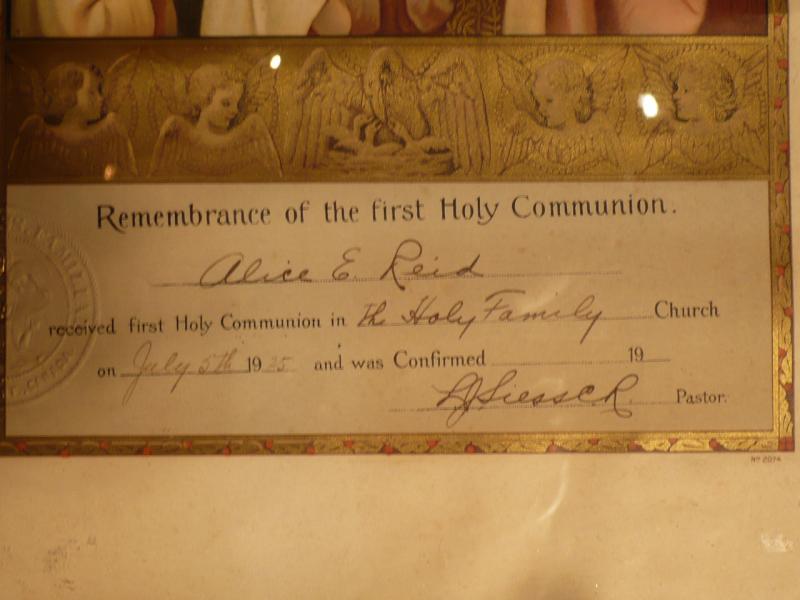 Remembrance of the first Holy Communion.
Alice E. Reid
received first Holy Communion in The Holy Family Church
on July 5th 1925 and was Confirmed 19
Pastor.
No 2074